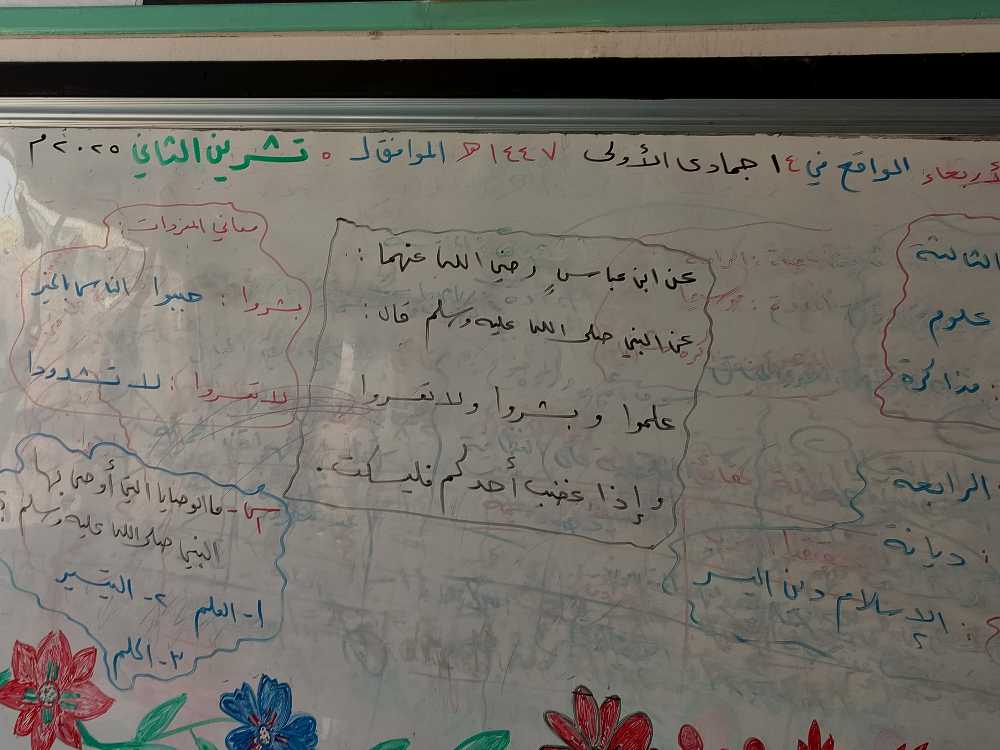 الأربعاء الواقع في ١٤ جمادى الأولى ١٤٤٧ هـ الموافق لـ ٥ تشرين الثاني ٢٠٢٥ م
الثالثة
علوم
: مذاكرة
: الرابعة
: ديانة
: الإسلام دين اليسر
عن ابن عباسٍ رضي الله عنهما :
عن النبي صلى الله عليه وسلم قال :
علموا وبشروا ولا تعسروا
وإذا غضب أحدكم فليسكت .
معاني المفردات :
بشروا : حببوا الناس بالخير
لا تعسروا : لا تشددوا
س١ - ما الوصايا التي أوصى بها
النبي صلى الله عليه وسلم ؟
١- العلم ٢- التيسير
٣- الحلم